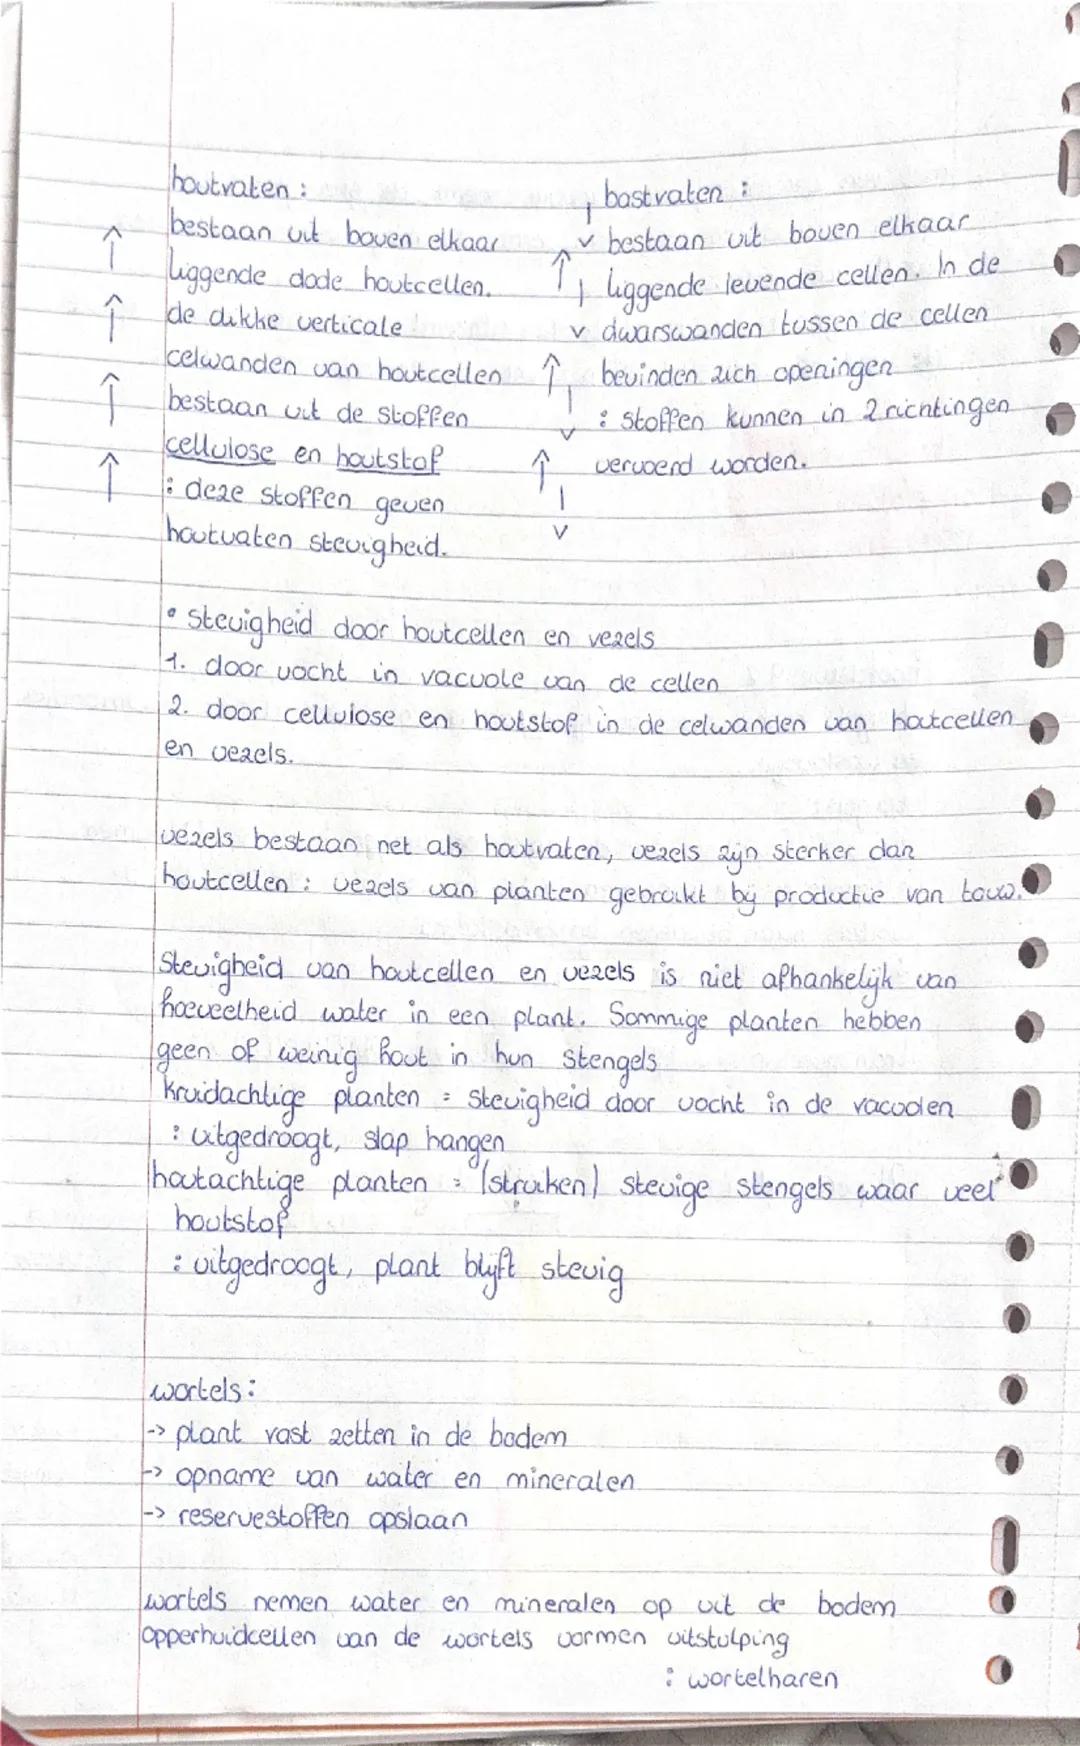 houtvaten :
bestaan uit boven elkaar
liggende dode houtcellen.
de dikke verticale
celwanden van houtcellen
bestaan uit de stoffen
cellulose en houtstof
: deze stoffen geven
houtvaten stevigheid.
bastvaten :
bestaan uit boven elkaar
liggende levende cellen. In de
dwarswanden tussen de cellen
bevinden zich openingen
: stoffen kunnen in 2 richtingen
vervoerd worden.
• Stevigheid door houtcellen en vezels
1. door vocht in vacuole van de cellen
2. door cellulose en houtstof in de celwanden van houtcellen
en vezels.
vezels bestaan net als houtvaten, vezels zijn sterker dan
houtcellen : vezels van planten gebruikt bij productie van touw.
Stevigheid van houtcellen en vezels is niet afhankelijk van
hoeveelheid water in een plant. Sommige planten hebben
geen of weinig hout in hun stengels
kruidachtige planten = stevigheid door vocht in de vacuolen
: uitgedroogt, slap hangen
houtachtige planten = (struiken) stevige stengels waar veel
houtstof
: uitgedroogt, plant blijft stevig
wortels :
-> plant vast zetten in de bodem
-> opname van water en mineralen
-> reservestoffen opslaan
wortels nemen water en mineralen op uit de bodem
opperhuidcellen van de wortels vormen uitstulping
: wortelharen